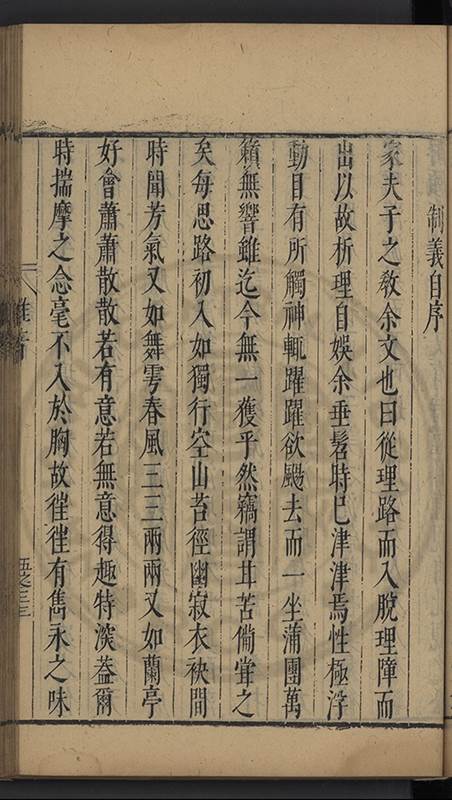 制義自序
家夫子之教余文也曰從理路而入脫理障而
出以故析理自娛余垂髫時已津津焉性極浮
動目有所觸神輒躍躍欲颺去而一坐蒲團萬
籟無響雖迄今無一獲乎然竊謂甘苦備嘗之
矣每思路初入如獨行空山苔徑幽寂衣袂間
時聞芳氣又如舞雩春風三三兩兩又如蘭亭
好會蕭蕭散散若有意若無意得趣特深蓋爾
時揣摩之念毫不入於胸故往往有雋永之味